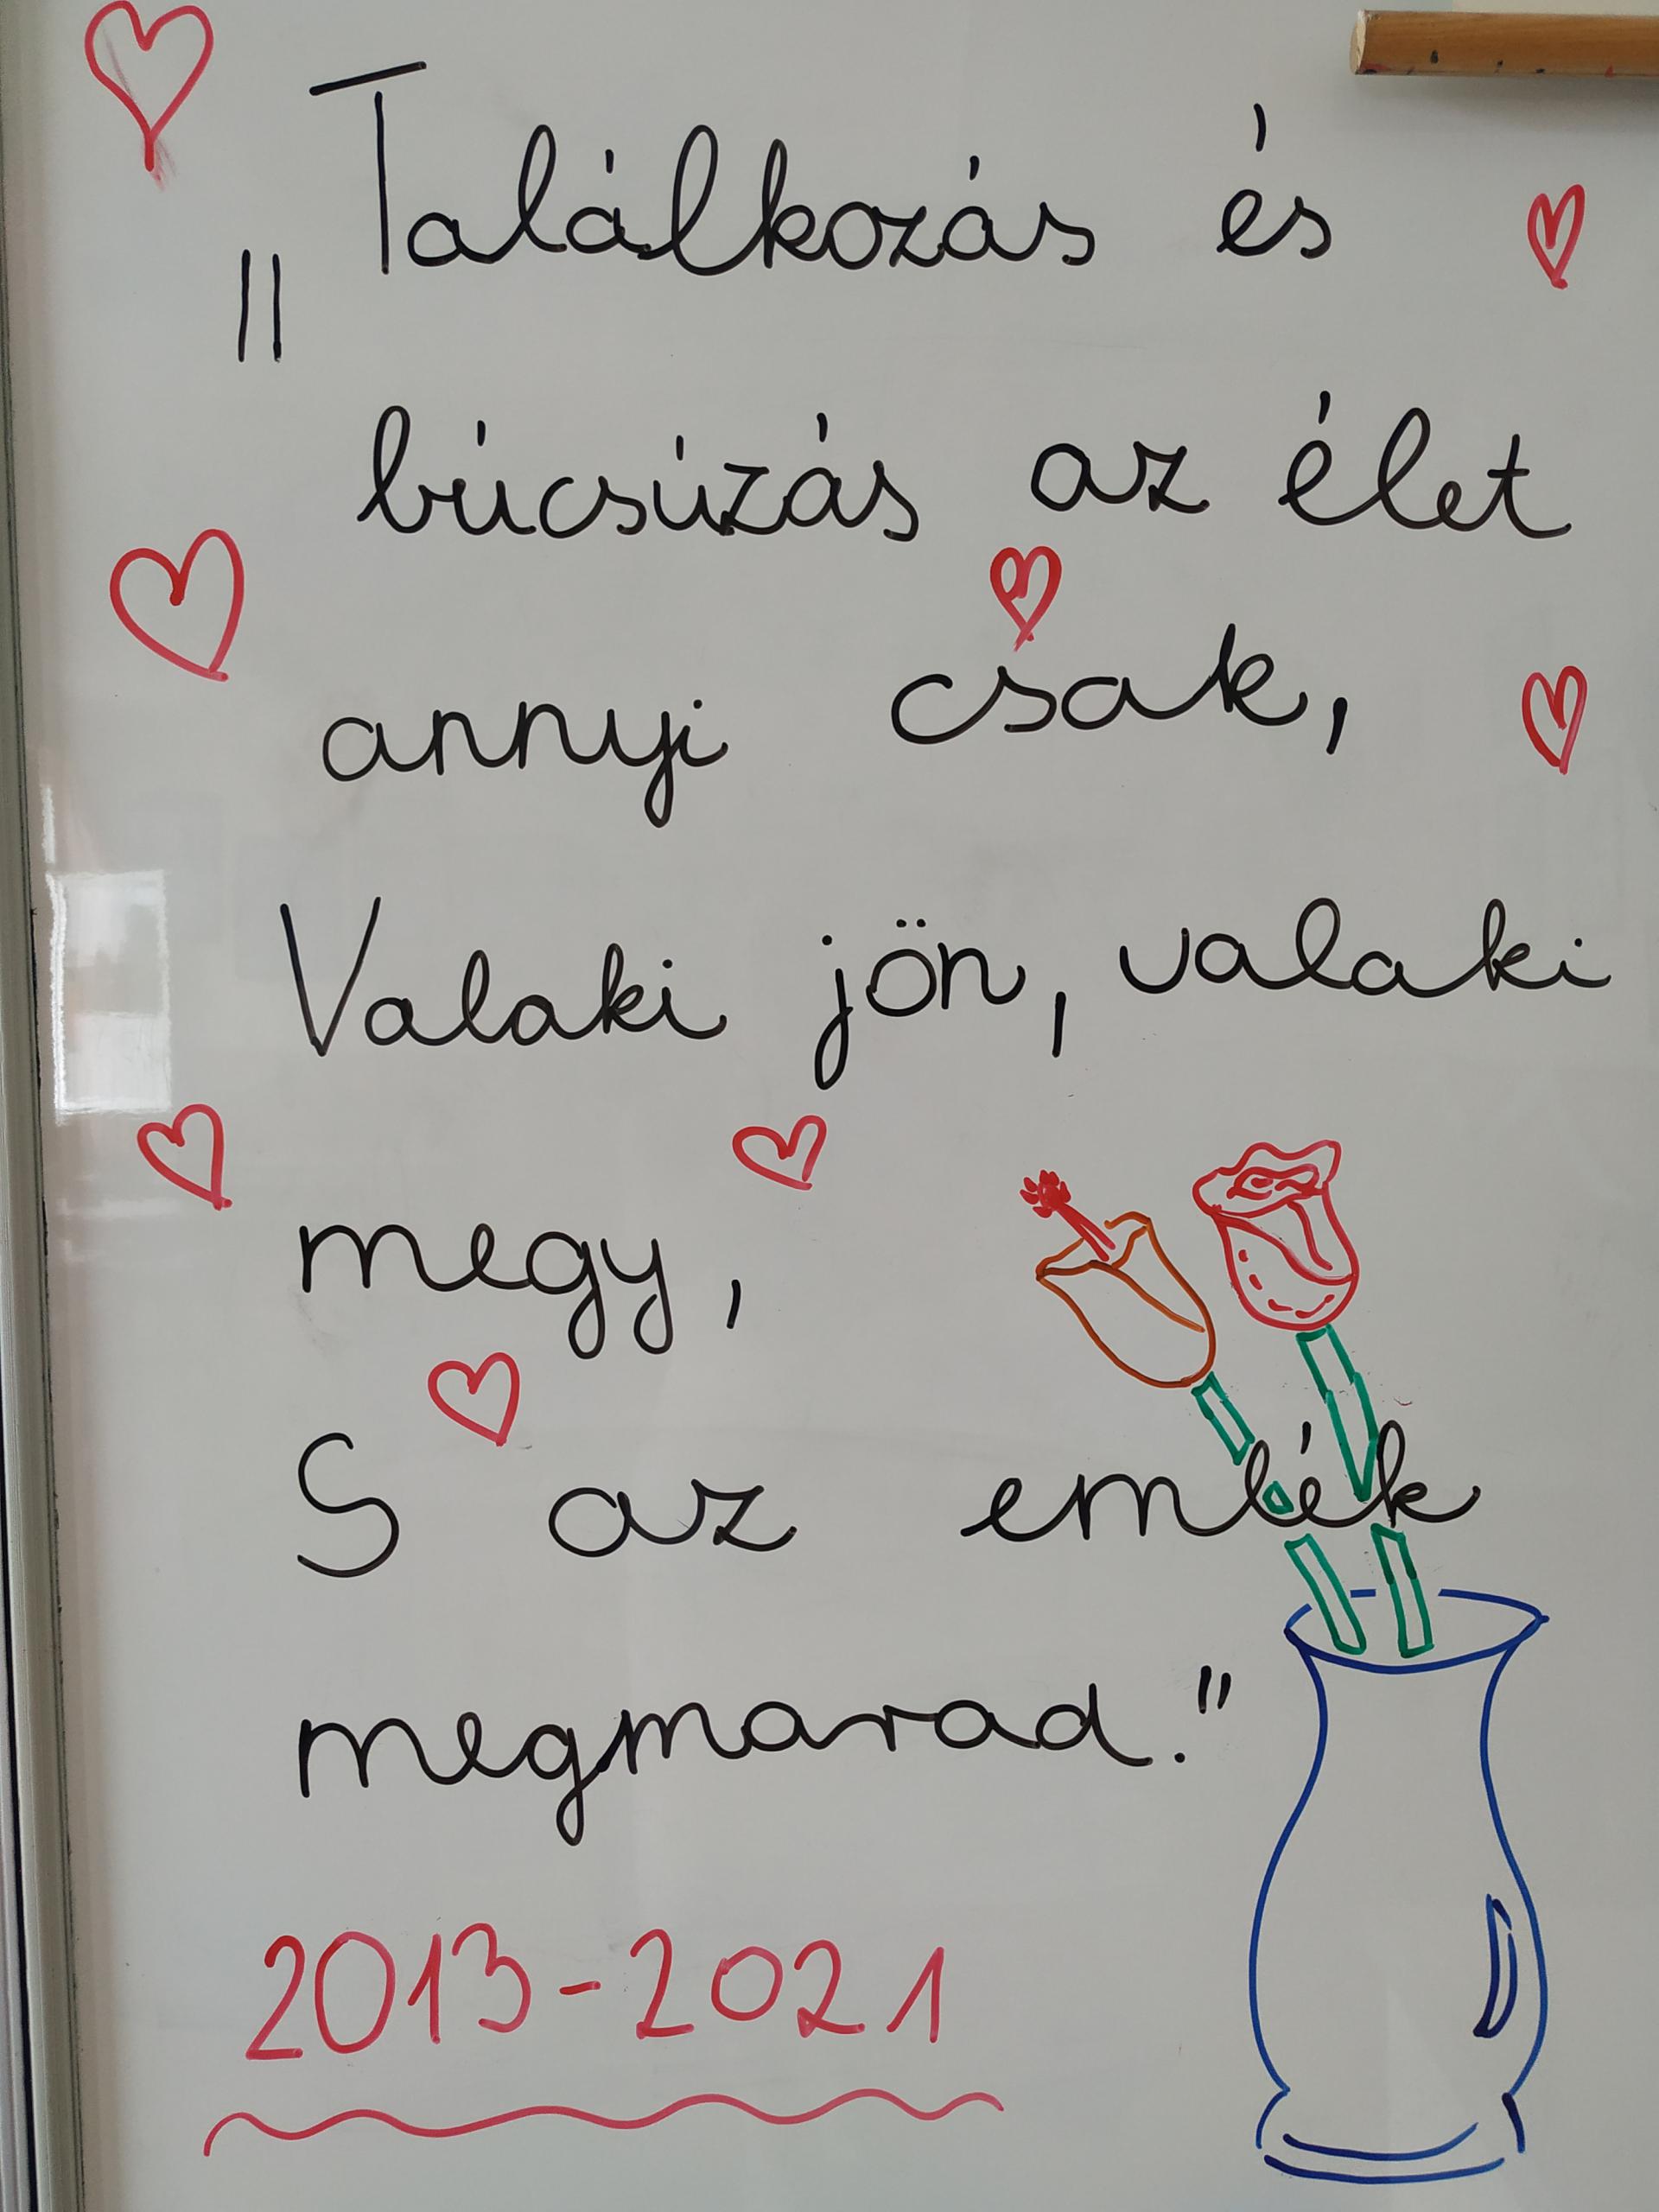 „Találkozás és
búcsúzás az élet
annyi csak,
Valaki jön, valaki
megy,
S az emlék
megmarad."
2013-2021